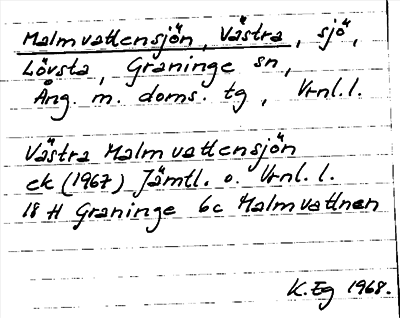 Malmvattensjön, Västra, sjö,
Lövsta, Graninge sn,
Ång. m. doms. tg, Vrnl.l.
Västra Malmvattensjön
ek (1967) Jämtl. o. Vrnl. l.
18 H Graninge 6c Malmvattnen
K. Eg 1968.